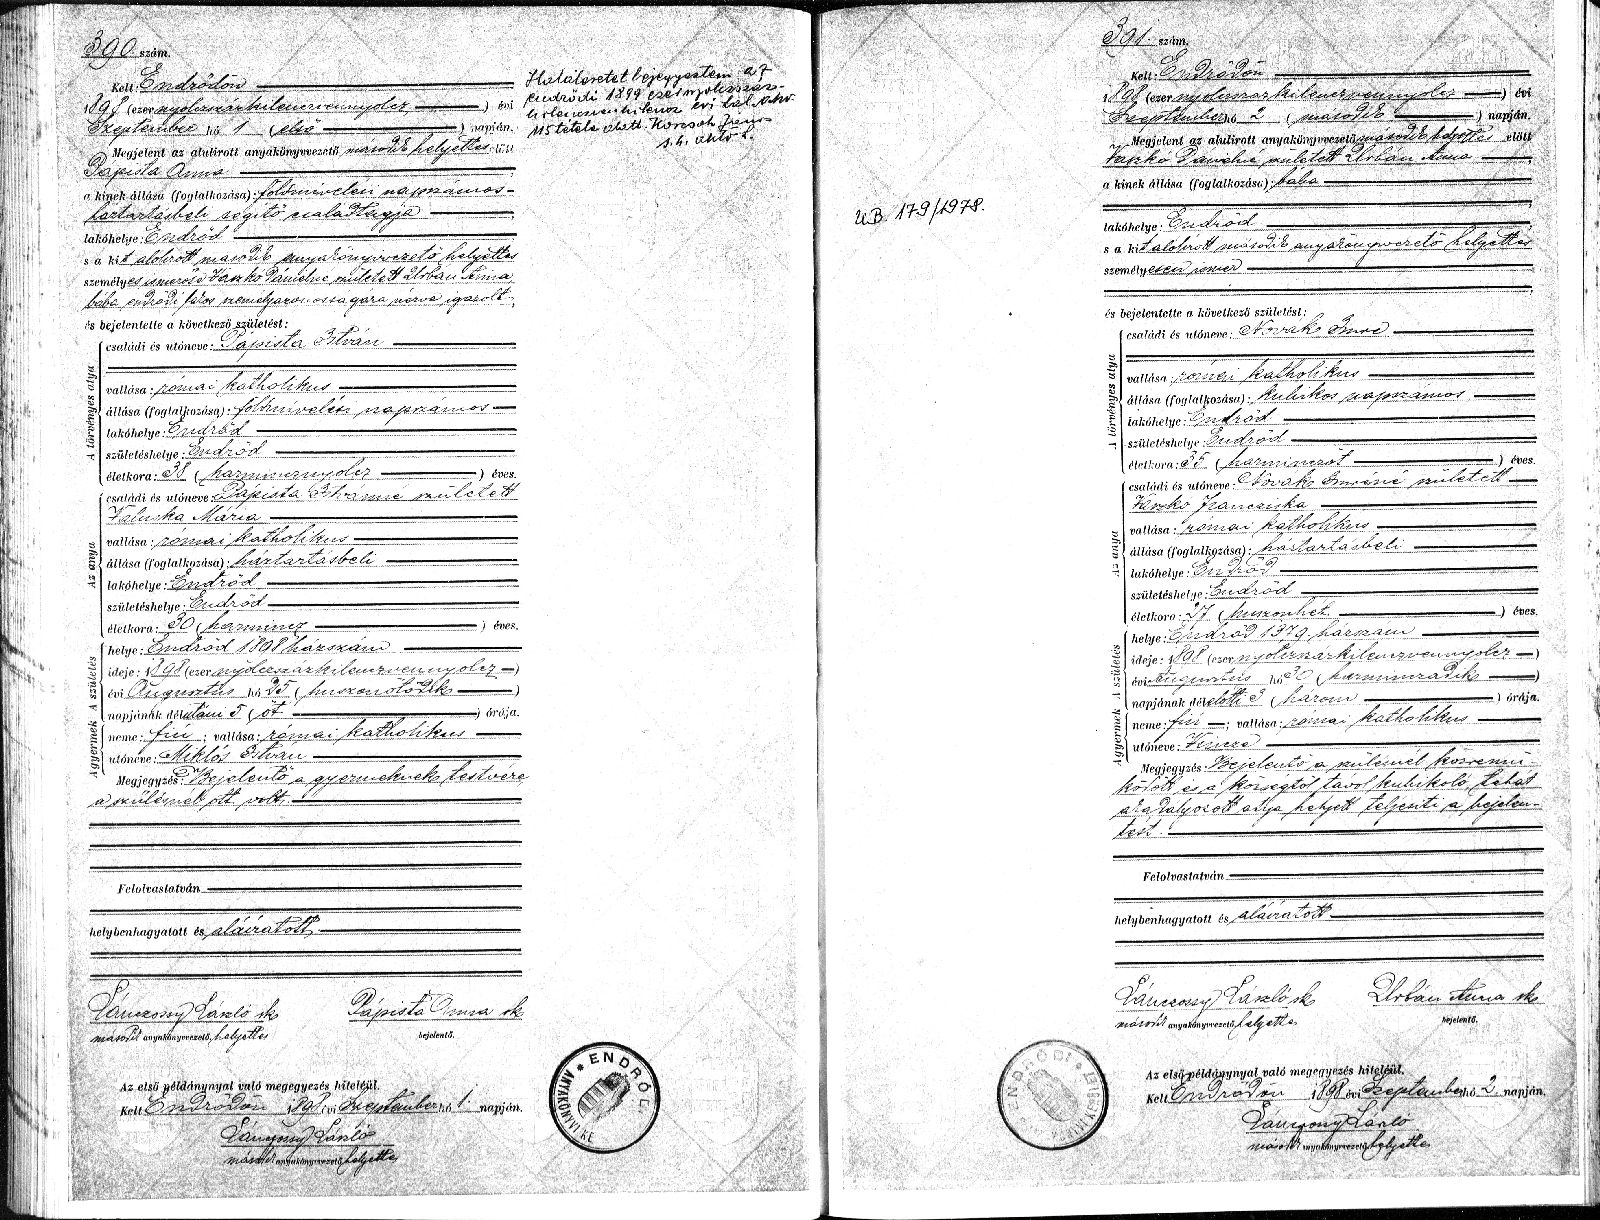 390. szám.
Kelt: Endrődön
1898 (ezernyolczszázkilenczvennyolcz) évi
Szeptember hó 1 (első) napján.
Megjelent az alulirott anyakönyvvezető második helyettes előtt
Pápista Anna
a kinek állása (foglalkozása): földmivelési napszámos-
háztartásbeli segitő családtagja
lakóhelye: Endrőd
s a kit alolirott második anyakönyvvezető helyettes
személyes ismerőse Vaszkó Dánielné született Urbán Anna
bába endrődi lakos személyazonosságára nézve igazolt,
és bejelentette a következő születést:
A törvényes atya
családi és utóneve: Pápista István
vallása: római katholikus
állása (foglalkozása): földmivelési napszámos
lakóhelye: Endrőd
születéshelye: Endrőd
életkora: 38 (harmincznyolcz) éves.
Az anya
családi és utóneve: Pápista Istvánné született
Valuska Mária
vallása: római katholikus
állása (foglalkozása): háztartásbeli
lakóhelye: Endrőd
születéshelye: Endrőd
életkora: 30 (harmincz) éves.
A születés
helye: Endrőd 1898 házszám
ideje: 1898 (ezernyolczszázkilenczvennyolcz)
évi Augusztus hó 25 (huszonötödik)
napjának délutáni 5 (öt) órája.
A gyermek
neme: fiú; vallása: római katholikus
utóneve: Miklós István
Megjegyzés: Bejelentő a gyermeknek testvére
a szülésnél ott volt.
Felolvastatván
helybenhagyatott és aláiratott
Lánczossy László sk Pápista Anna sk
második anyakönyvvezető helyettes bejelentő.
Az első példánynyal való megegyezés hiteléül.
Kelt Endrődön 1898 évi Szeptember hó 1. napján.
Lánczossy László
második anyakönyvvezető helyettes
ENDRŐD
Halálesetet bejegyeztem az
endrődi 1899 ezernyolczszáz-
kilenczvenkilencz évi hal. akv.
115 tétele alatt.
s. k. akvő h.
U.B. 179/1978.
391. szám.
Kelt: Endrődön
1898 (ezernyolczszázkilenczvennyolcz) évi
Szeptember hó 2 (második) napján.
Megjelent az alulirott anyakönyvvezető második helyettes előtt
Vaszkó Dánielné született Urbán Anna
a kinek állása (foglalkozása): bába
lakóhelye: Endrőd
s a kit alolirott második anyakönyvvezető helyettes
személyesen ismer
és bejelentette a következő születést:
A törvényes atya
családi és utóneve: Novák Imre
vallása: római katholikus
állása (foglalkozása): kubikos napszámos
lakóhelye: Endrőd
születéshelye: Endrőd
életkora: 35 (harminczöt) éves.
Az anya
családi és utóneve: Novák Imréné született
Vaszkó Francziska
vallása: római katholikus
állása (foglalkozása): háztartásbeli
lakóhelye: Endrőd
születéshelye: Endrőd
életkora: 27 (huszonhét) éves.
A születés
helye: Endrőd 1379 házszám
ideje: 1898 (ezernyolczszázkilenczvennyolcz)
évi Augusztus hó 30 (harminczadik)
napjának délelőtti 3 (három) órája.
A gyermek
neme: fiú; vallása: római katholikus
utóneve: Vincze
Megjegyzés: Bejelentő a szülésnél közremű-
ködött és a községtől távol kubikoló, tehát
akadályozott atya helyett teljesiti a bejelen-
tést.
Felolvastatván
helybenhagyatott és aláiratott
Lánczossy László sk Urbán Anna sk
második anyakönyvvezető helyettes bejelentő.
Az első példánynyal való megegyezés hiteléül.
Kelt Endrődön 1898 évi Szeptember hó 2. napján.
Lánczossy László
második anyakönyvvezető helyettes
ENDRŐDI